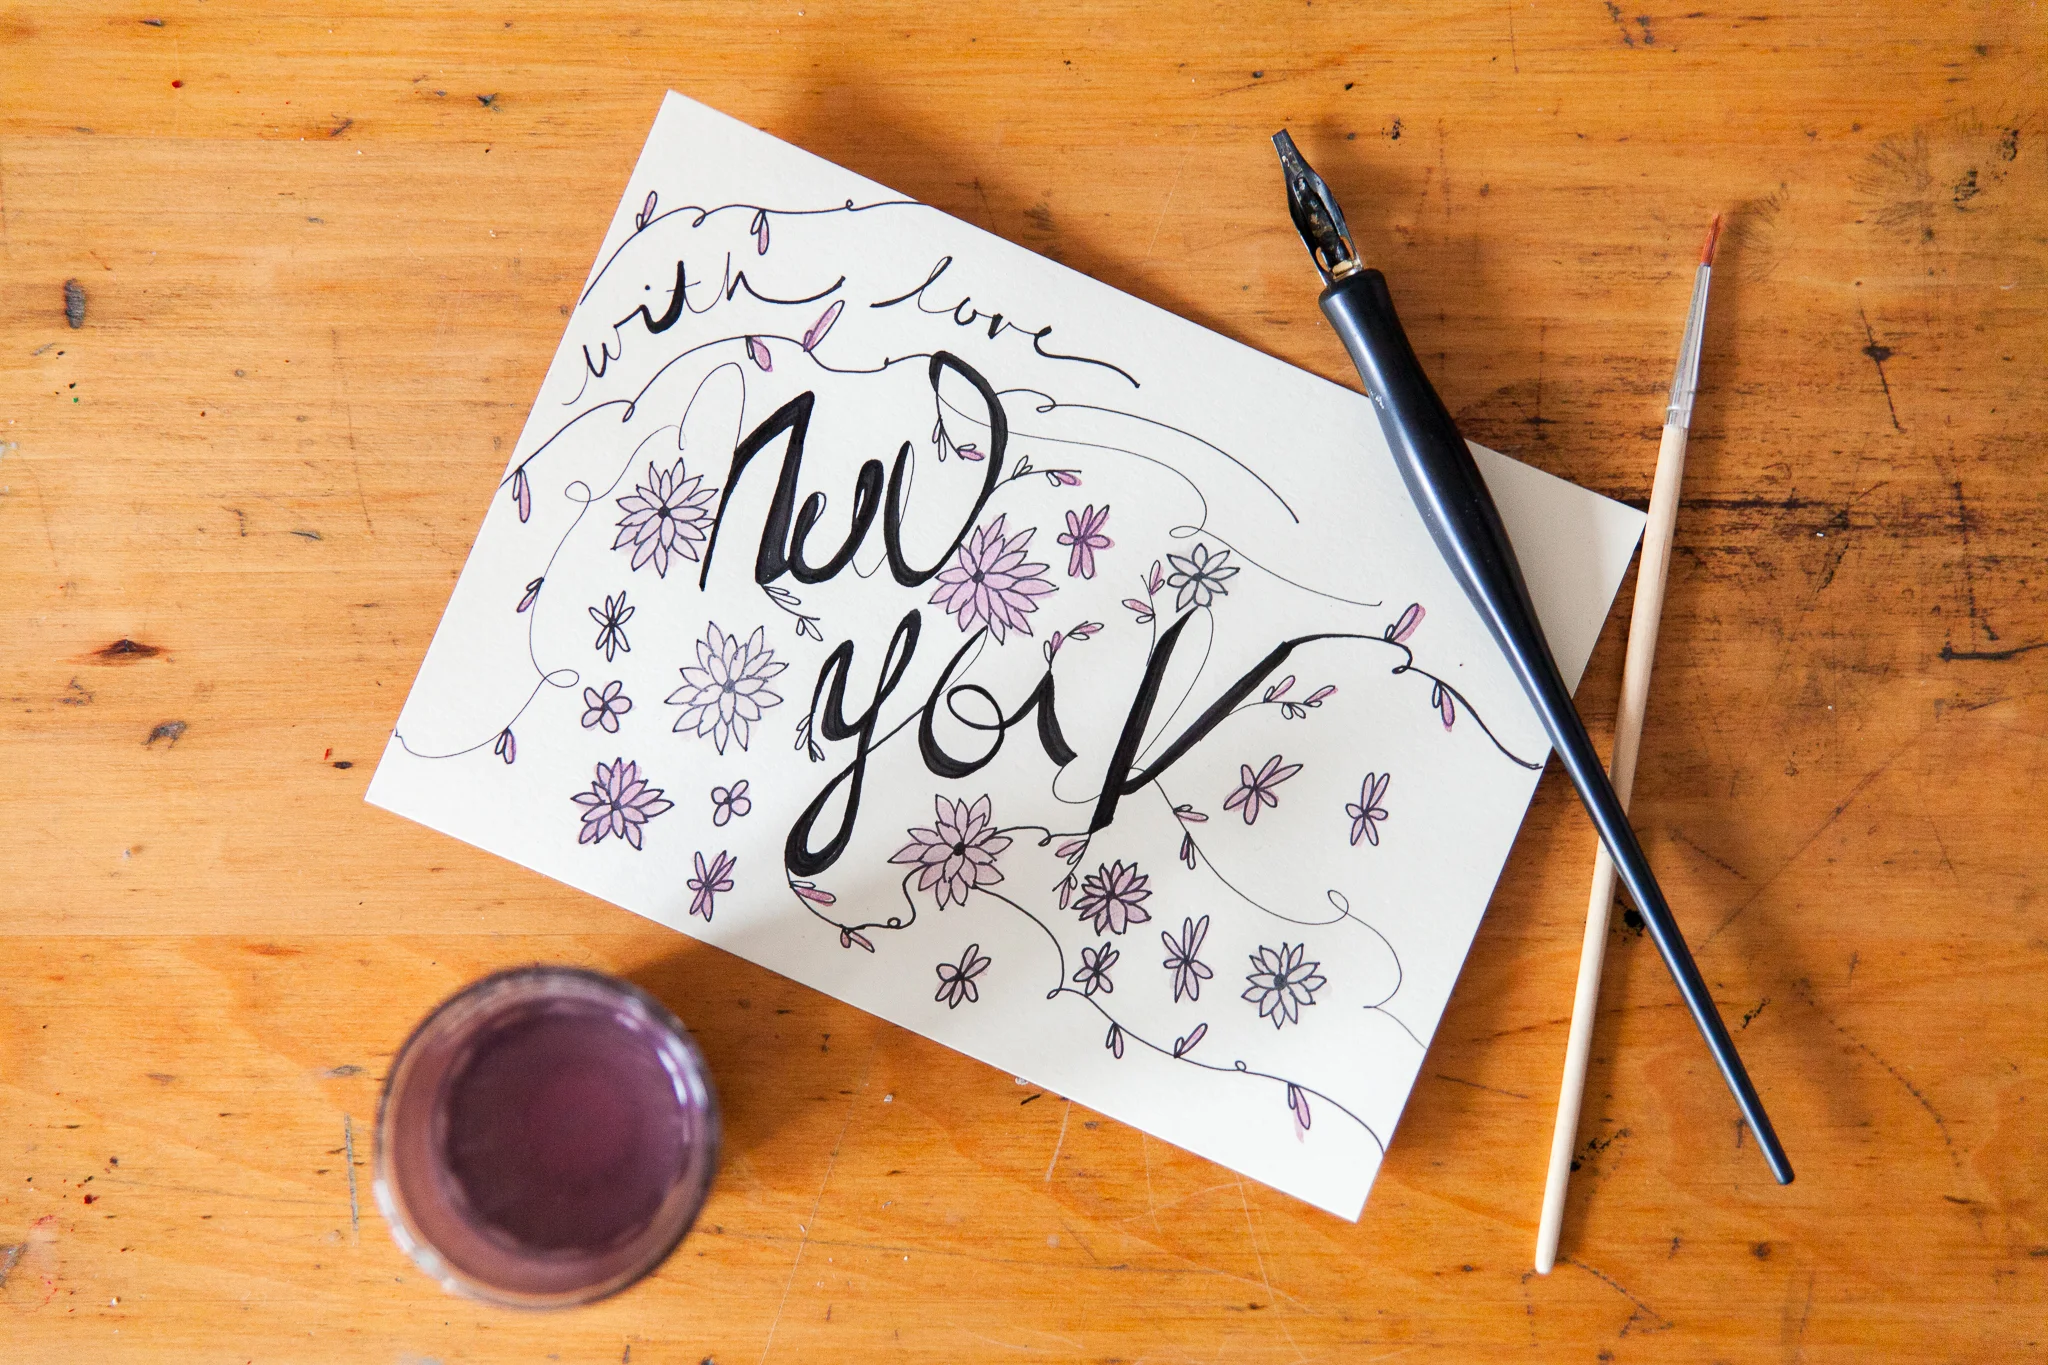 with love
New
york